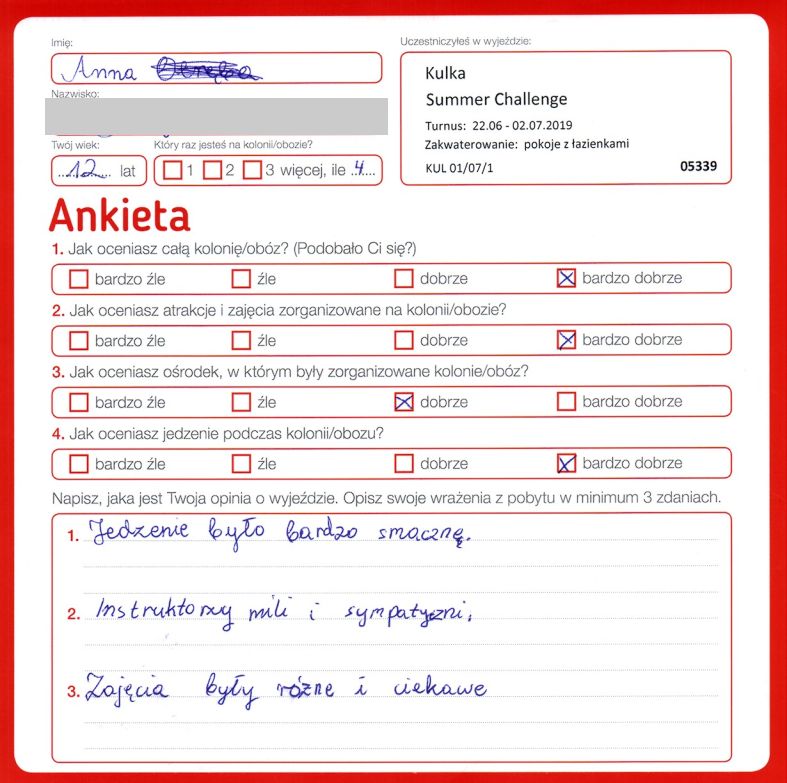 Imię:
Anna
Nazwisko:
Twój wiek:
12 lat
Który raz jesteś na kolonii/obozie?
1 2 3 więcej, ile 4
Uczestniczyłeś w wyjeździe:
Kulka
Summer Challenge
Turnus: 22.06 - 02.07.2019
Zakwaterowanie: pokoje z łazienkami
KUL 01/07/1 05339
Ankieta
1. Jak oceniasz całą kolonię/obóz? (Podobało Ci się?)
bardzo źle źle dobrze bardzo dobrze
2. Jak oceniasz atrakcje i zajęcia zorganizowane na kolonii/obozie?
bardzo źle źle dobrze bardzo dobrze
3. Jak oceniasz ośrodek, w którym były zorganizowane kolonie/obóz?
bardzo źle źle dobrze bardzo dobrze
4. Jak oceniasz jedzenie podczas kolonii/obozu?
bardzo źle źle dobrze bardzo dobrze
Napisz, jaka jest Twoja opinia o wyjeździe. Opisz swoje wrażenia z pobytu w minimum 3 zdaniach.
1. Jedzenie było bardzo smacznę.
2. Instruktorzy mili i sympatyczni.
3. Zajęcia były różne i ciekawe